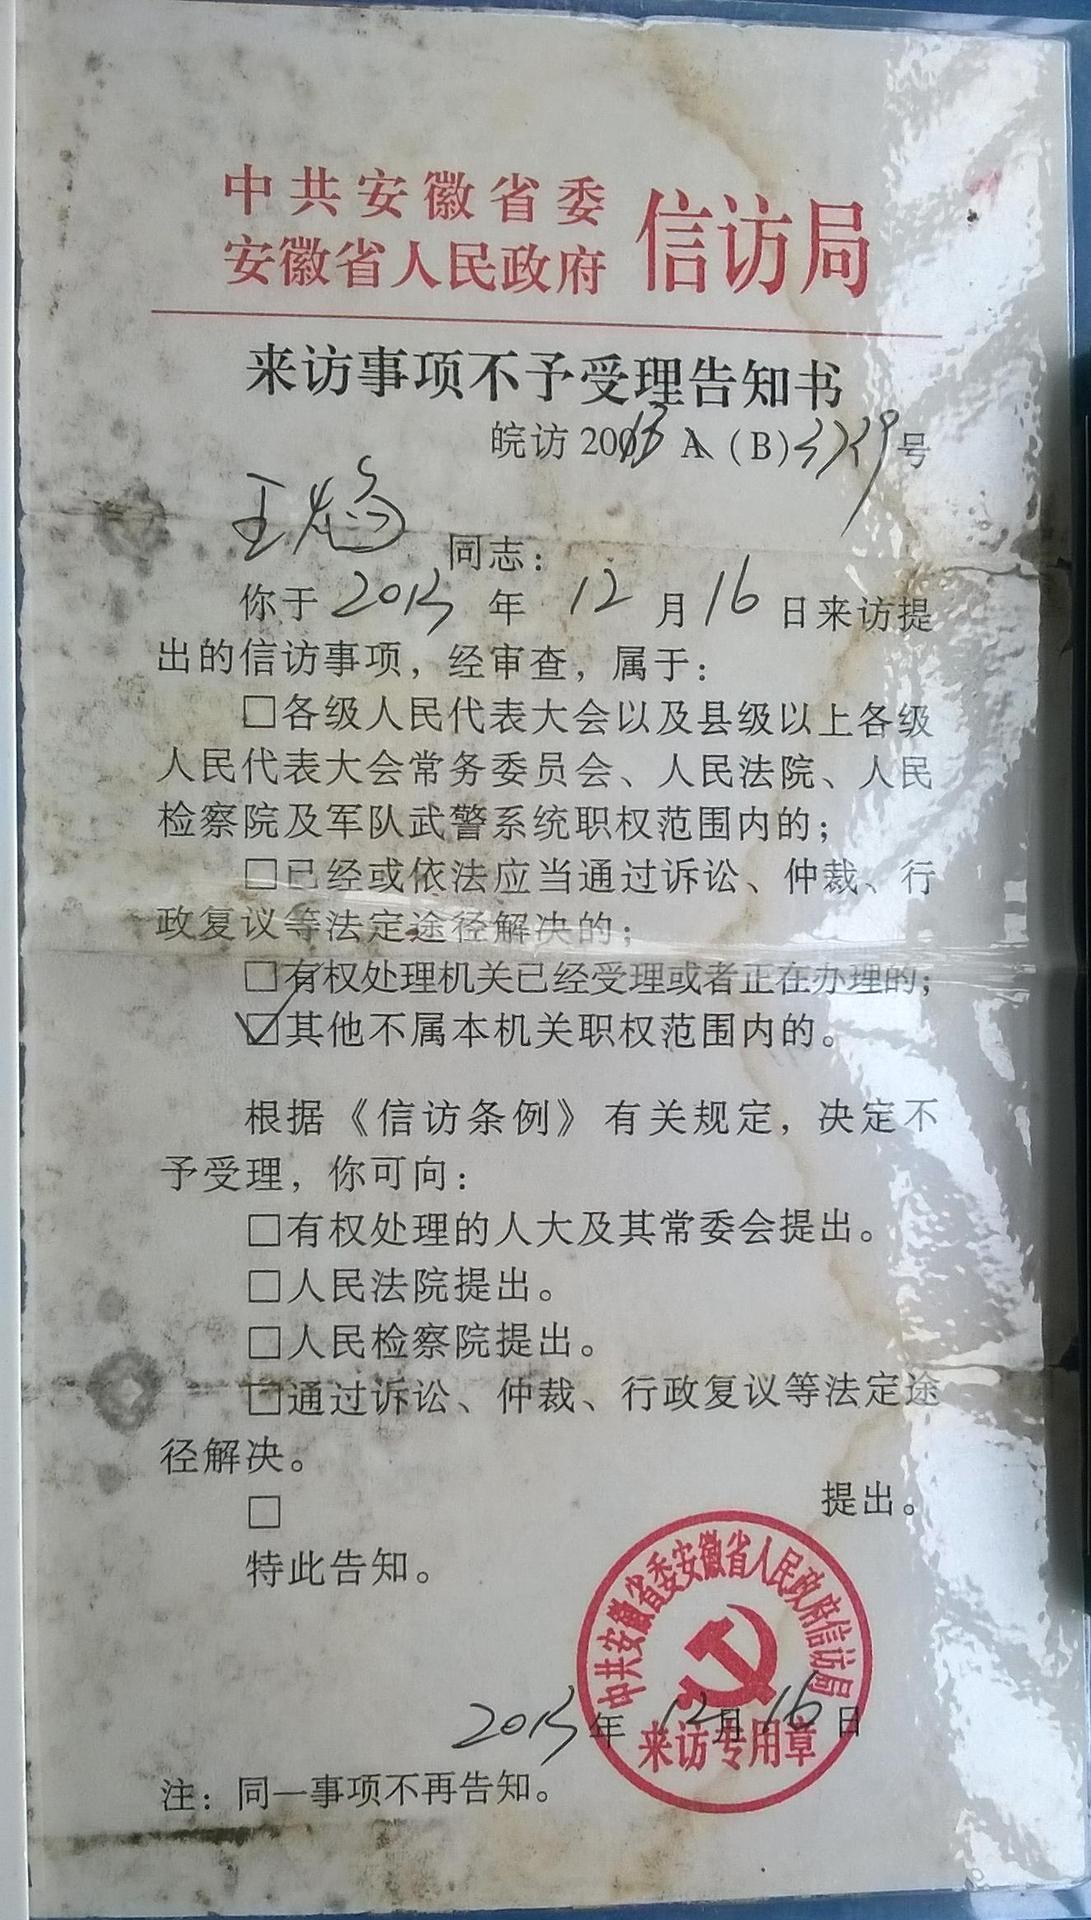 中共安徽省委
安徽省人民政府
信访局
来访事项不予受理告知书
皖访 2013 A (B) 号
王焰 同志：
你于 2013 年 12 月 16 日来访提
出的信访事项，经审查，属于：
□各级人民代表大会以及县级以上各级
人民代表大会常务委员会、人民法院、人民
检察院及军队武警系统职权范围内的；
□已经或依法应当通过诉讼、仲裁、行
政复议等法定途径解决的；
□有权处理机关已经受理或者正在办理的；
☑其他不属本机关职权范围内的。
根据《信访条例》有关规定，决定不
予受理，你可向：
□有权处理的人大及其常委会提出。
□人民法院提出。
□人民检察院提出。
□通过诉讼、仲裁、行政复议等法定途
径解决。
□ 提出。
特此告知。
中共安徽省委安徽省人民政府信访局
2013 年 12 月 16 日
来访专用章
注：同一事项不再告知。